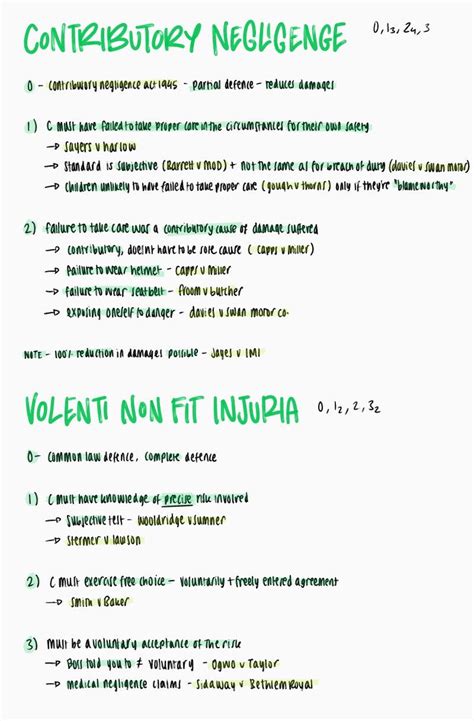 CONTRIBUTORY NEGLIGENGE 0, 13, 24, 3
0 - contributory negligence act 1945 - partial defence - reduces damages
1) C must have failed to take proper care in the circumstances for their own safety
→ Sayers v harlow
→ Standard is subjective (Barrett v MOD) + not the same as for breach of duty (davies v swan motor)
→ Children unlikely to have failed to take proper care (gough v thorns) only if they're "blameworthy"
2) failure to take care was a contributory cause of damage suffered
→ contributory, doesnt have to be sole cause (capps v miller)
→ failure to wear helmet - capps v miller
→ failure to wear seatbelt - froom v butcher
→ exposing oneself to danger - davies v swan motor co.
NOTE - 100% reduction in damages possible - Jayes v IMI
VOLENTI NON FIT INJURIA 0, 12, 2, 32
0- Common law defence, complete defence
1) C must have knowledge of precise risk involved
→ Subjective test - Wooldridge v sumner
→ Stermer v lawson
2) C must exercise free choice - voluntarily + freely entered agreement
→ Smith v Baker
3) must be a voluntary acceptance of the risk
→ Boss told you to ≠ voluntary - Ogwo v Taylor
→ medical negligence claims - Sidaway v Bethlem Royal